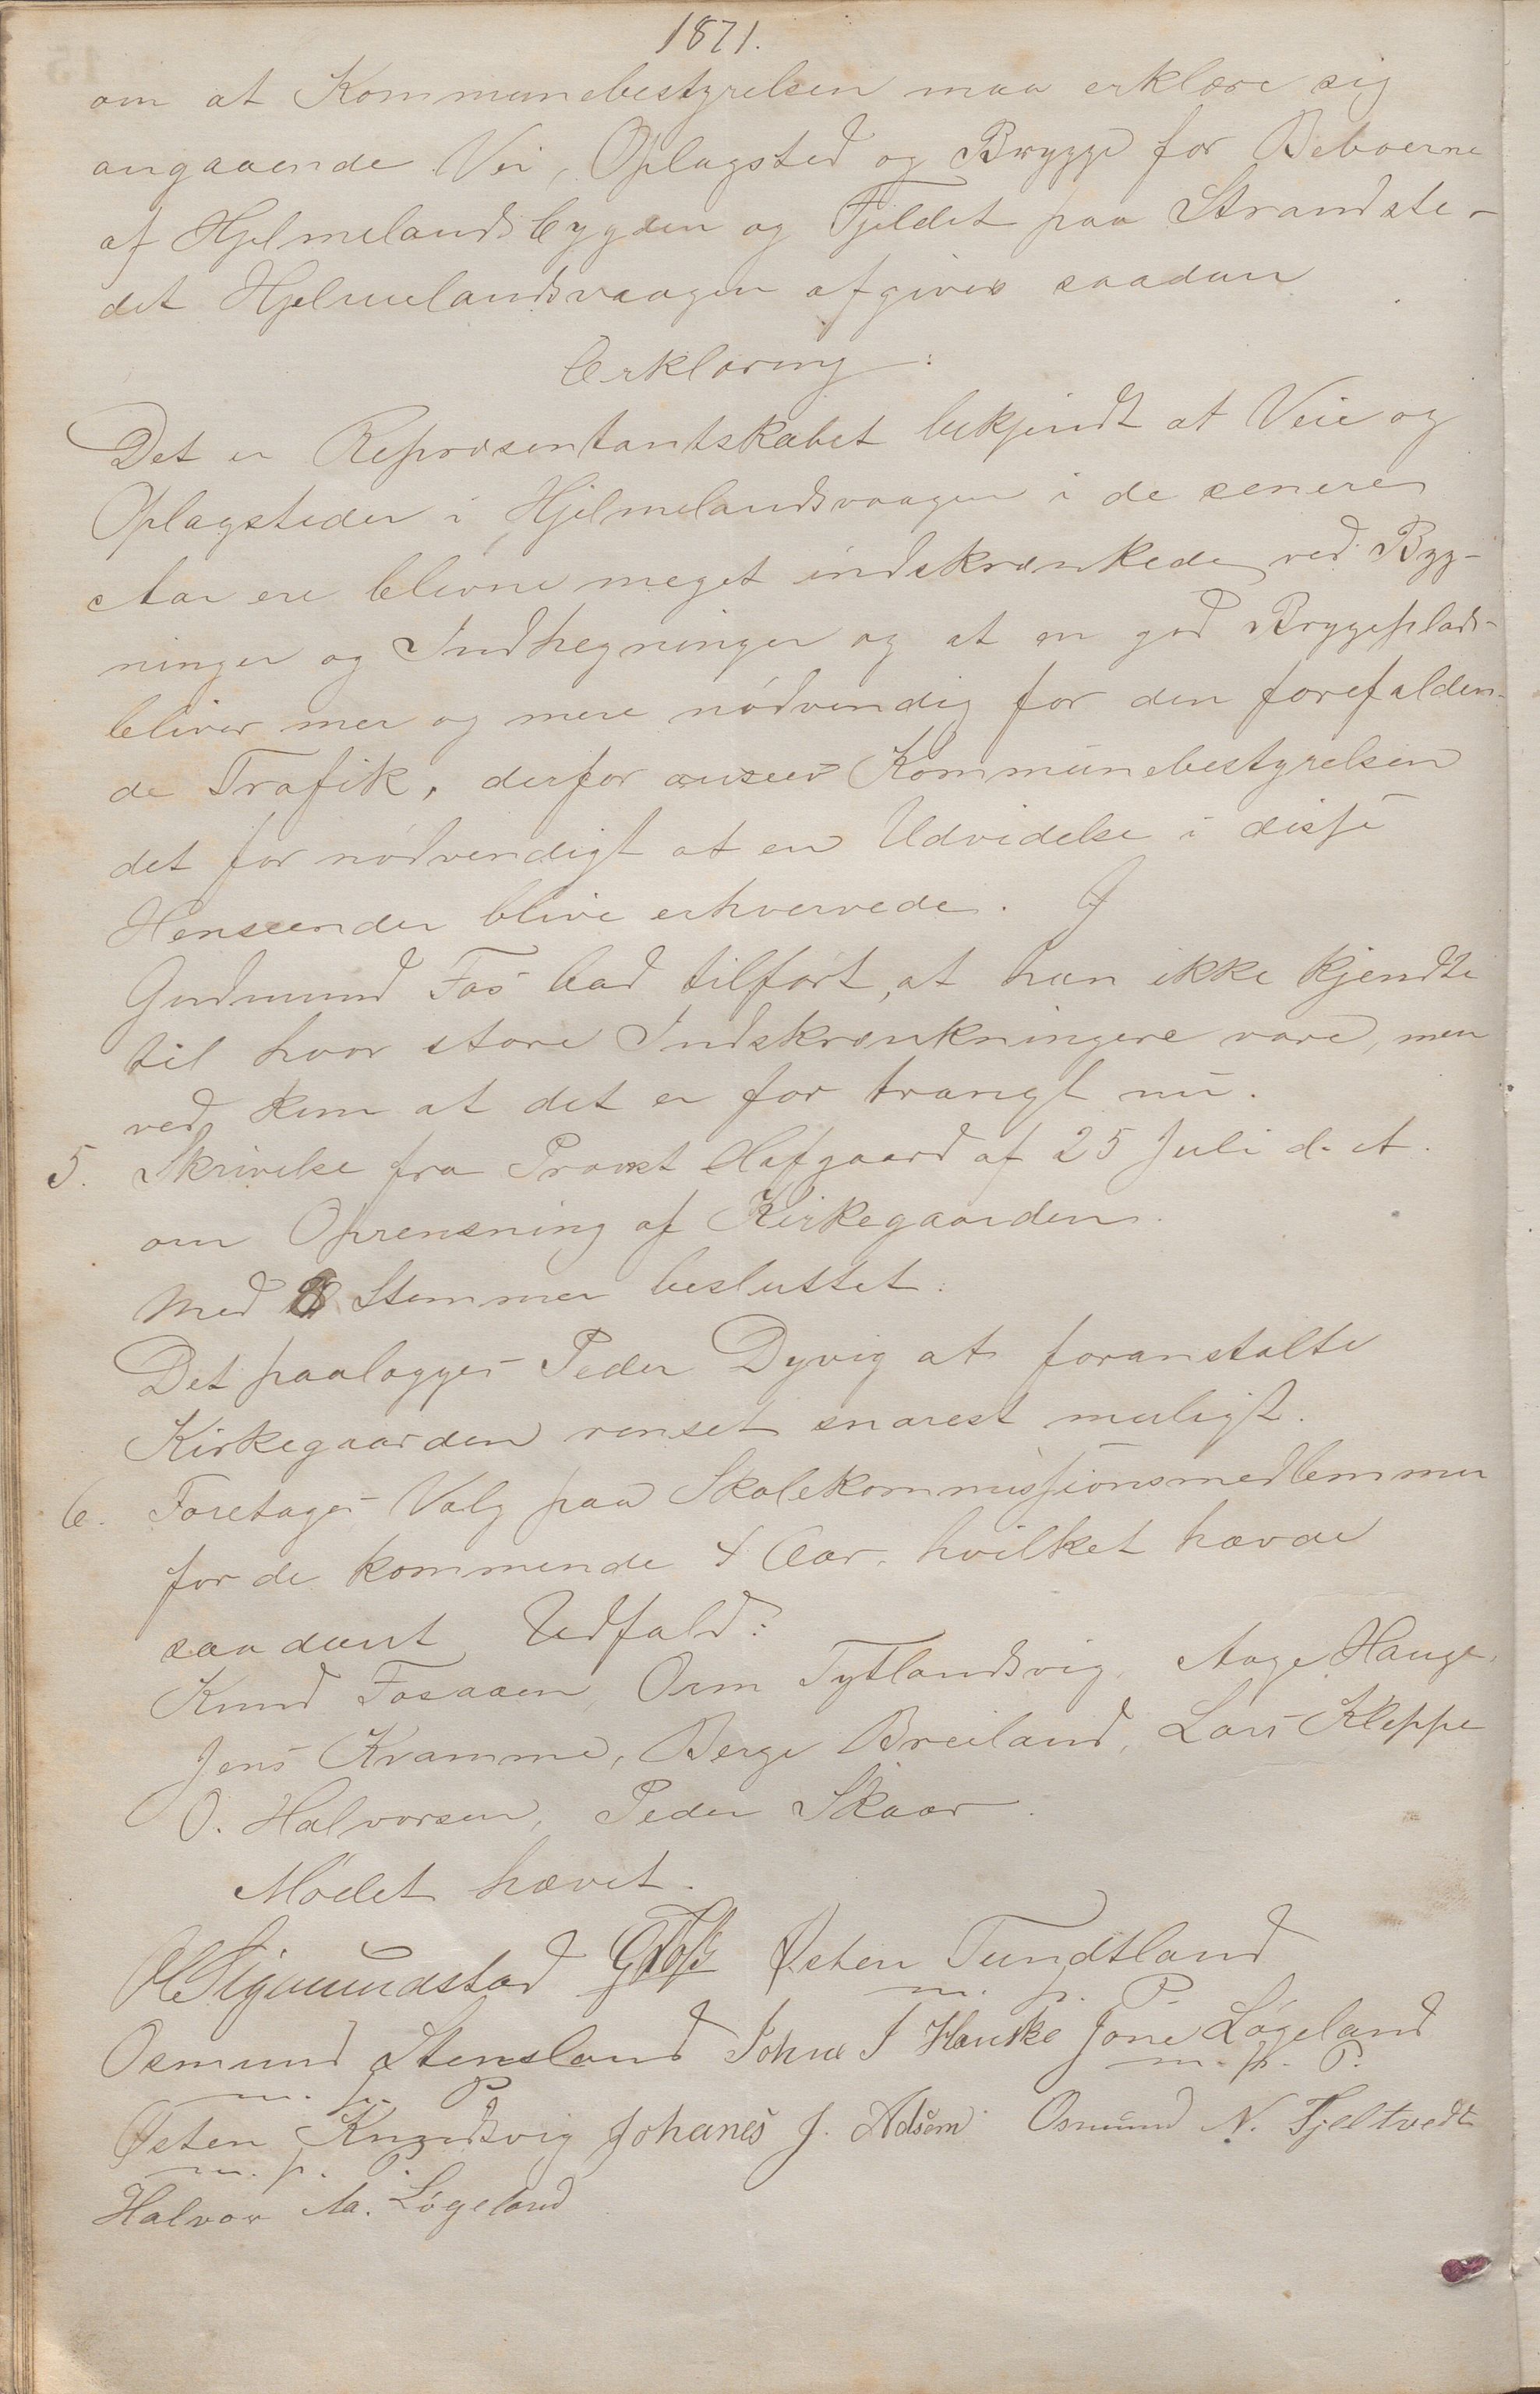 1871.
om at Kommunebestyrelsen maa erklære sig
angaaende Vei, Oplagsted og Brygge for Beboerne
af Hjelmelandsbygden og Fjeldet paa Strandste-
det Hjelmelandsvaagen afgives saadan
Erklæring:
Det er Repræsentantskabet bekjendt at Veie og
Oplagsteder i Hjelmelandsvaagen i de senere
Aar ere blevne meget indskrænkede ved Byg-
ninger og Indhegninger og at en god Bryggeplads
bliver mer og mere nödvendig for den forefalden-
de Trafik, derfor anseer Kommunebestyrelsen
det for nödvendigt at en Udvidelse i disse
Henseender blive erhvervede.
Gudmund Fos bad tilført, at han ikke kjendte
til hvor store Indskrænkningere vare, men
ved kun at det er for trangt nu.
5. Skrivelse fra Provst Hafgaard af 25 Juli d. A.
om Oprensning af Kirkegaarden.
Med 8 Stemmer besluttet:
Det paalægges Peder Dyvig at foranstalte
Kirkegaarden renset snarest muligt.
6. Foretages Valg paa Skolekommissionsmedlemmer
for de kommende 4 Aar, hvilket havde
saadant Udfald:
Knud Fosaaen, Orm Tytlandsvig, Aage Hauge,
Jens Kvamme, Berge Breiland, Lars Kleppe
O. Halvorsen, Peder Skaar.
Mödet hævet.
Sigmundstad GFoss Østen Tundtland
m. p. P.
Osmund Stensland Johne J Hauske Jone Løgeland
m. p. P. m. p. P.
Østen Knudsvig Johanes J. Adsem Osmund N. Fjeltvedt
m. p. P.
Halvor Aa. Løgeland